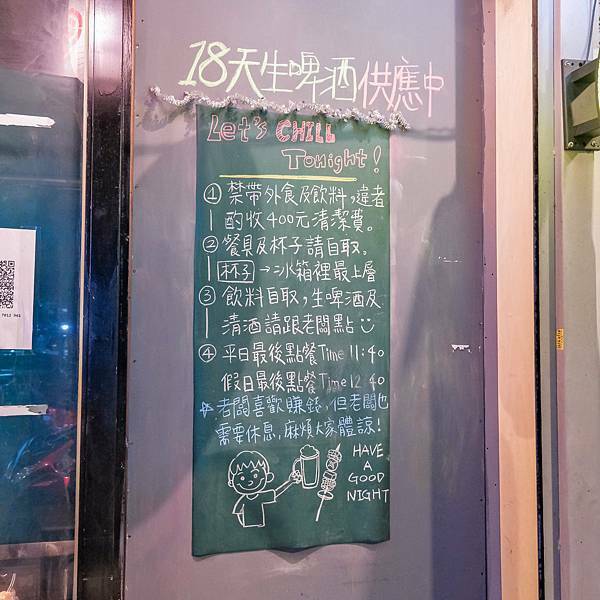 18天生啤酒供應中
Let's CHILL
Tonight!
① 禁帶外食及飲料,違者
酌收400元清潔費。
② 餐具及杯子請自取。
杯子→冰箱裡最上層
③ 飲料自取,生啤酒及
清酒請跟老闆點
④ 平日最後點餐Time 11:40
假日最後點餐Time 12 40
☆老闆喜歡賺錢,但老闆也
需要休息,麻煩大家體諒!
HAVE
A
GOOD
NIGHT